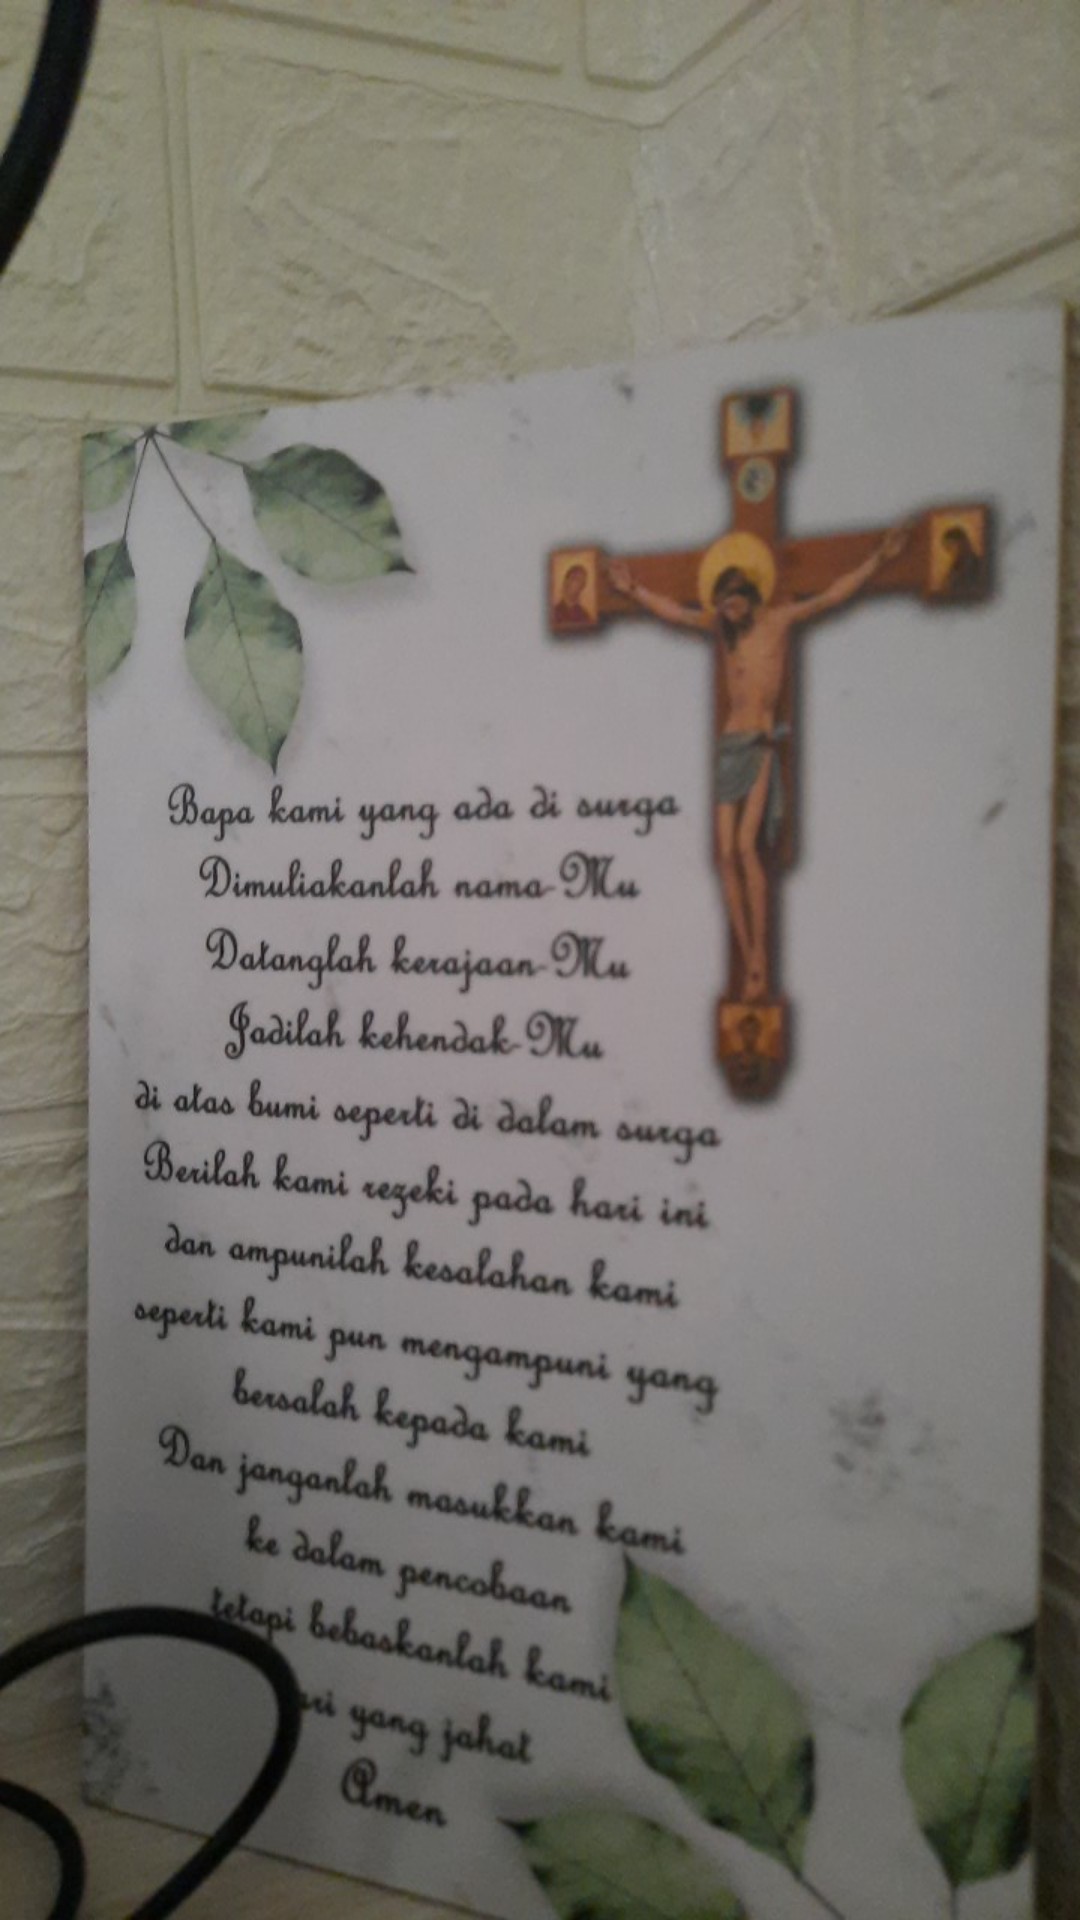 Bapa kami yang ada di surga
Dimuliakanlah nama-Mu
Datanglah kerajaan-Mu
Jadilah kehendak-Mu
di atas bumi seperti di dalam surga
Berilah kami rezeki pada hari ini
dan ampunilah kesalahan kami
seperti kami pun mengampuni yang
bersalah kepada kami
Dan janganlah masukkan kami
ke dalam pencobaan
tetapi bebaskanlah kami
yang jahat
Amen